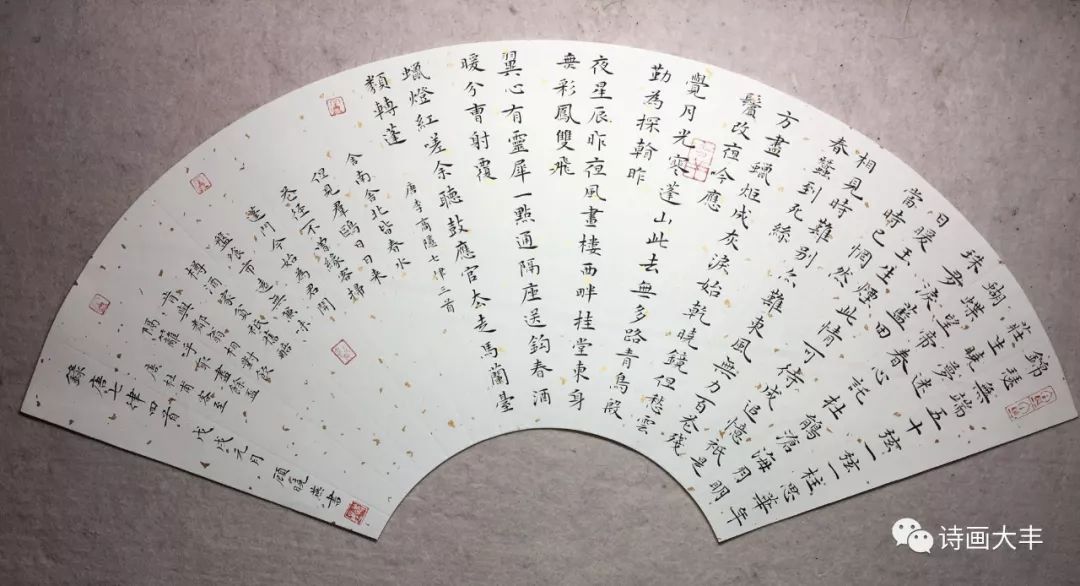 錦瑟無端五十弦一弦一柱思華年
莊生曉夢迷
蝴蝶望帝春心託杜鵑滄海月明
珠有淚藍田
日暖玉生煙此情可待成追憶祇是
當時已惘然
相見時難別亦難東風無力百花殘
春蠶到死絲
方盡蠟炬成灰淚始乾曉鏡但愁雲
鬢改夜吟應
覺月光寒蓬山此去無多路青鳥殷
勤為探翰昨
夜星辰昨夜風畫樓西畔桂堂東身
無彩鳳雙飛
翼心有靈犀一點通隔座送鈎春酒
暖分曹射覆
蠟燈紅嗟余聽鼓應官去走馬蘭臺
類轉蓬
唐李商隱七律三首
舍南舍北皆春水
但見羣鷗日日來
花徑不曾緣客掃
蓬門今始為君開
盤飧市遠無兼味
樽酒家貧祇舊醅
肯與鄰翁相對飲
隔籬呼取盡餘盃
唐杜甫客至
錄唐七律四首 戊戌元月 顧曉燕書
诗画大丰